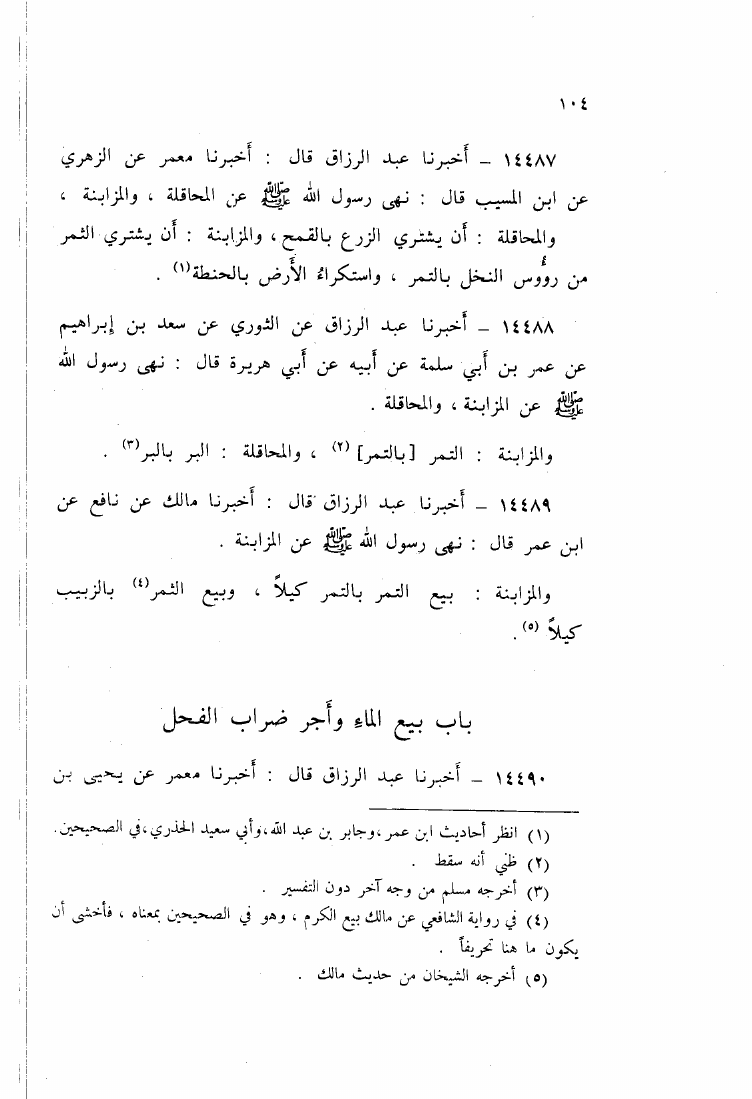 ١٠٤
١٤٤٨٧ – أخبرنا عبد الرزاق قال : أخبرنا معمر عن الزهري
عن ابن المسيب قال : نهى رسول الله ﷺ عن المحاقلة ، والمزابنة ،
والمحاقلة : أن يشتري الزرع بالقمح ، والمزابنة : أن يشتري الثمر
من رؤُوس النخل بالتمر ، واستكراءُ الأَرض بالحنطة(١) .
١٤٤٨٨ – أخبرنا عبد الرزاق عن الثوري عن سعد بن إبراهيم
عن عمر بن أبي سلمة عن أبيه عن أبي هريرة قال : نهى رسول الله
ﷺ عن المزابنة ، والمحاقلة .
والمزابنة : التمر [بالتمر] (٢) ، والمحاقلة : البر بالبر(٣) .
١٤٤٨٩ – أخبرنا عبد الرزاق قال : أخبرنا مالك عن نافع عن
ابن عمر قال : نهى رسول الله ﷺ عن المزابنة .
والمزابنة : بيع التمر بالتمر كيلاً ، وبيع الثمر(٤) بالزبيب
كيلاً (٥) .
باب بيع الماء وأَجر ضراب الفحل
١٤٤٩٠ – أخبرنا عبد الرزاق قال : أخبرنا معمر عن يحيى بن
(١) انظر أحاديث ابن عمر ،وجابر بن عبد الله،وأبي سعيد الخدري،في الصحيحين.
(٢) ظني أنه سقط .
(٣) أخرجه مسلم من وجه آخر دون التفسير .
(٤) في رواية الشافعي عن مالك بيع الكرم ، وهو في الصحيحين بمعناه ، فأخشى أن
يكون ما هنا تحريفاً .
(٥) أخرجه الشيخان من حديث مالك .